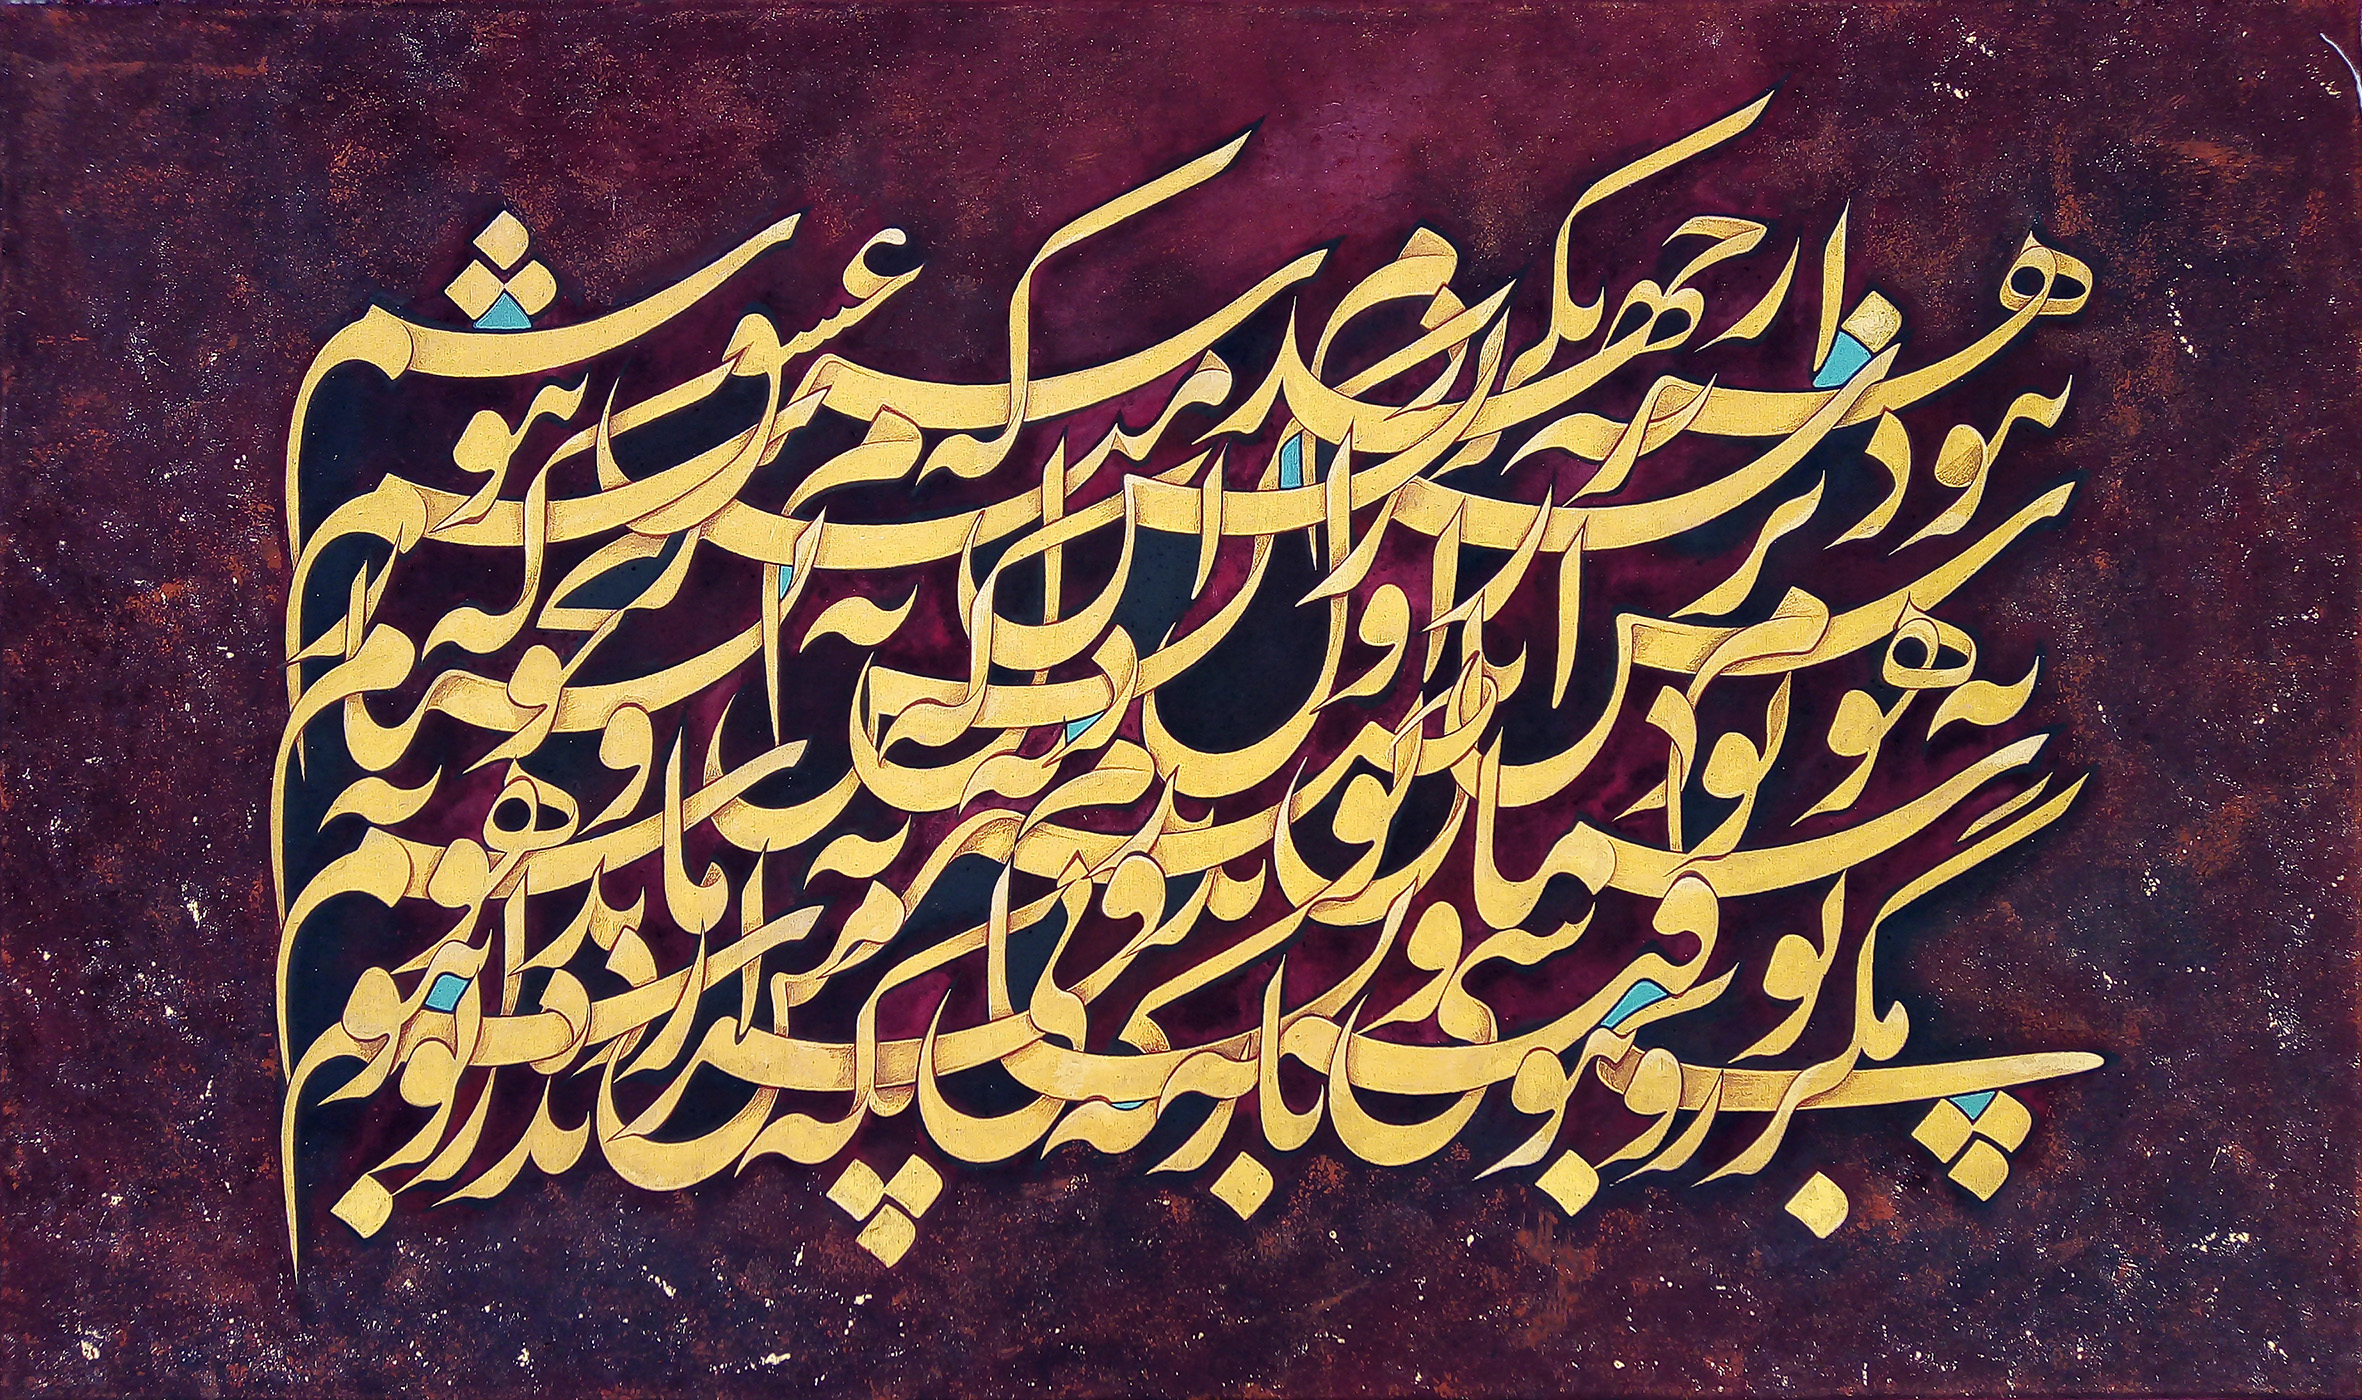 هزار جهد بکردم که سر عشق بپوشم
نبود بر سر آتش میسرم که نجوشم
به هوش بودم از اول که دل به کس نسپارم
شمایل تو بدیدم نه صبر ماند و نه هوشم
مگر تو روی بپوشی و فتنه بازنشانی
که من قرار ندارم که دیده از تو بپوشم